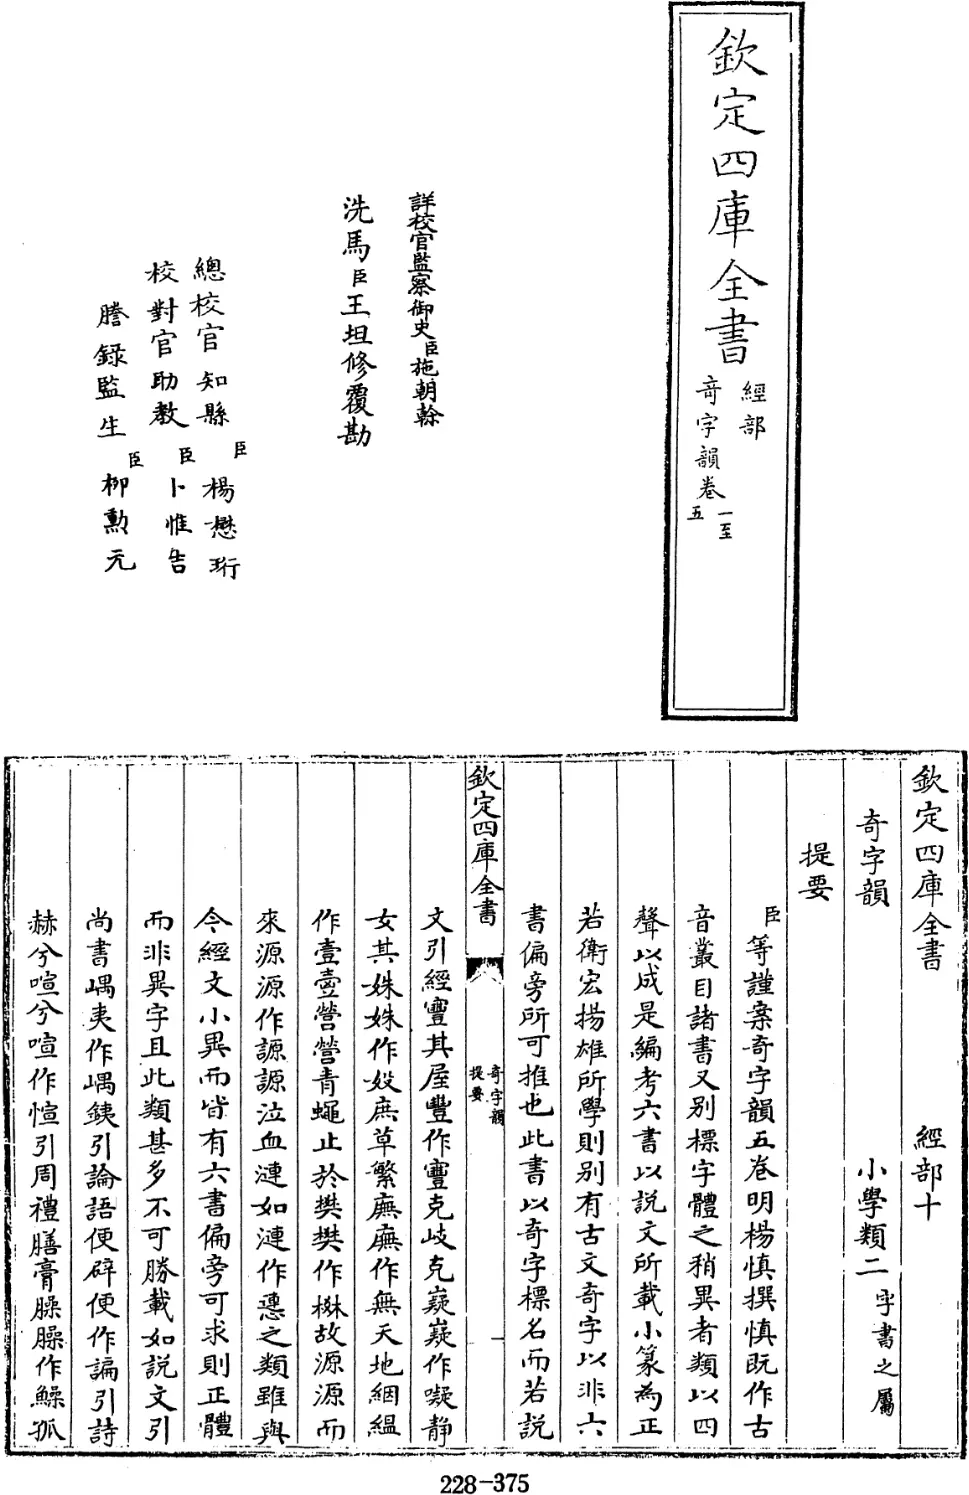 欽定四庫全書
經部
奇字韻卷一至五
詳校官監察御史臣施朝榦
洗馬臣王坦修覆勘
總校官知縣臣楊懋珩
校對官助教臣卜惟吉
謄錄監生臣柳勳元
欽定四庫全書 經部十
奇字韻 小學類二字書之屬
提要
臣等謹案奇字韻五卷明楊慎撰慎既作古
音叢目諸書又別標字體之稍異者類以四
聲以成是編考六書以說文所載小篆為正
若衛宏揚雄所學則别有古文奇字以非六
書偏旁所可推也此書以奇字標名而若說
欽定四庫全書 奇字韻 提要 一
文引經寷其屋豐作寷克岐克嶷嶷作㘈静
女其姝姝作㛥庶草繁廡廡作無天地絪縕
作壹壺營營青蠅止於樊樊作棥故源源而
來源源作謜謜泣血漣如漣作㦁之類雖與
今經文小異而皆有六書偏旁可求則正體
而非異字且此類甚多不可勝載如說文引
尚書嵎夷作嵎銕引論語便辟便作諞引詩
赫兮喧兮喧作愃引周禮膳膏臊臊作鱢狐
228-375